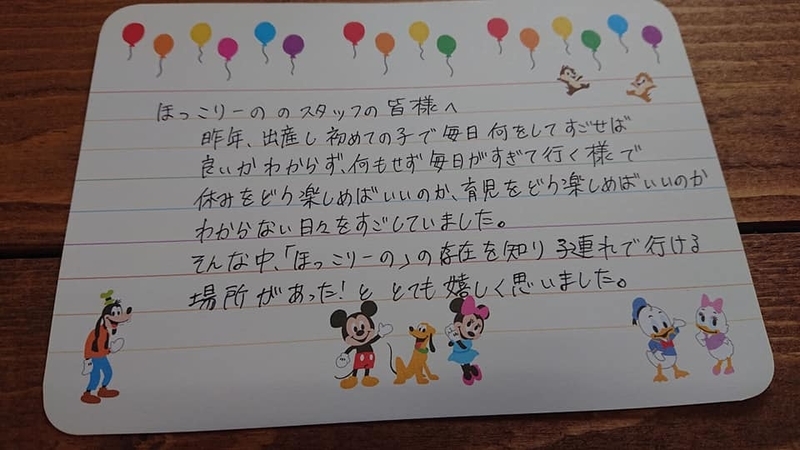 ほっこりーの のスタッフの皆様へ
昨年、出産し初めての子で毎日何をしてすごせば
良いかわからず、何もせず毎日がすぎて行く様で
休みをどう楽しめばいいのか、育児をどう楽しめばいいのか
わからない日々をすごしていました。
そんな中、「ほっこりーの」の存在を知り子連れで行ける
場所があった！と とても嬉しく思いました。